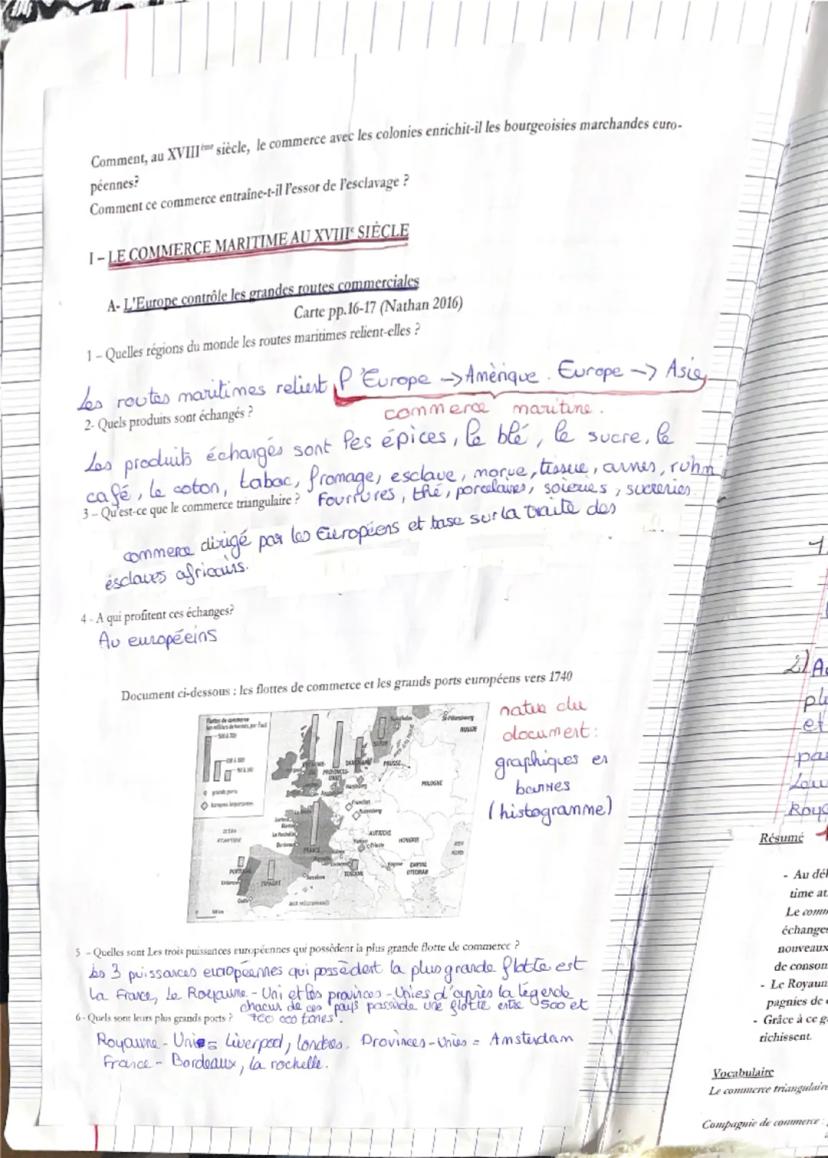 Comment, au XVIIIème siècle, le commerce avec les colonies enrichit-il les bourgeoisies marchandes euro-
péennes?
Comment ce commerce entraîne-t-il l'essor de l'esclavage ?
I – LE COMMERCE MARITIME AU XVIIIe SIÈCLE
A- L'Europe contrôle les grandes routes commerciales
Carte pp.16-17 (Nathan 2016)
1 – Quelles régions du monde les routes maritimes relient-elles ?
Les routes maritimes relient l'Europe -> Amèrique. Europe -> Asie
commerce maritime.
2- Quels produits sont échangés ?
Les produits échangés sont les épices, le blé, le sucre, le
café, le coton, tabac, fromage, esclave, morue, tissue, armes, ruhm
Fourrures, thé, porcelaines, soieries, sucreries
3 – Qu'est-ce que le commerce triangulaire ?
commerce dirigé par les Européens et base sur la traite des
ésclaves africains.
4 - A qui profitent ces échanges?
Au européeins
Document ci-dessous : les flottes de commerce et les grands ports européens vers 1740
natue du
document:
graphiques en
barres
(histogramme)
Flottes de commerce
grands ports
OCÉAN
ATLANTIQUE
PROVINCES-
UNIES
PRUSSE
RUSSIE
POLOGNE
AUTRICHE
HONGRIE
FRANCE
EMPIRE
OTTOMAN
PORTUGAL
ESPAGNE
TOSCANE
MER
NOIRE
MER MÉDITERRANÉE
5 - Quelles sont Les trois puissances européennes qui possèdent la plus grande flotte de commerce ?
les 3 puissances européennes qui possèdent la plus grande flotte est
La France, le Royaume-Uni et les provinces-Unies d'après la légende
chacun de ces pays possède une flotte entre 500 et
700 000 tones.
6 - Quels sont leurs plus grands ports ?
Royaume-Unie = Liverpool, londres. Provinces-Unies = Amsterdam
France - Bordeaux, la rochelle.
2)
et
Résumé
- Au dé
time at
Le comm
échange
nouveaux
de consom
- Le Royaum
pagnies de
- Grâce à ce g
richissent.
Vocabulaire
Le commerce triangulaire
Compagnie de commerce :